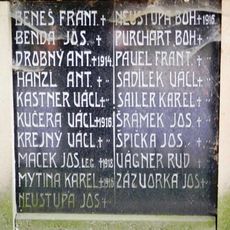 BENEŠ FRANT. †
BENDA JOS. †
DROBNÝ ANT. † 1914
HANZL ANT. †
KASTNER VÁCL. †
KUČERA VÁCL. † 1916
KREJNÝ VÁCL. †
MACEK JOS. LEG. † 1918
MYTINA KAREL † 1916
NEUSTUPA JOS †
NEUSTUPA BOH. † 1916
PURCHART BOH. †
PAVEL FRANT. †
SADÍLEK VÁCL. †
SAILER KAREL †
ŠRÁMEK JOS. †
ŠPIČKA JOS. †
VÁGNER RUD †
ZÁZVORKA JOS. †